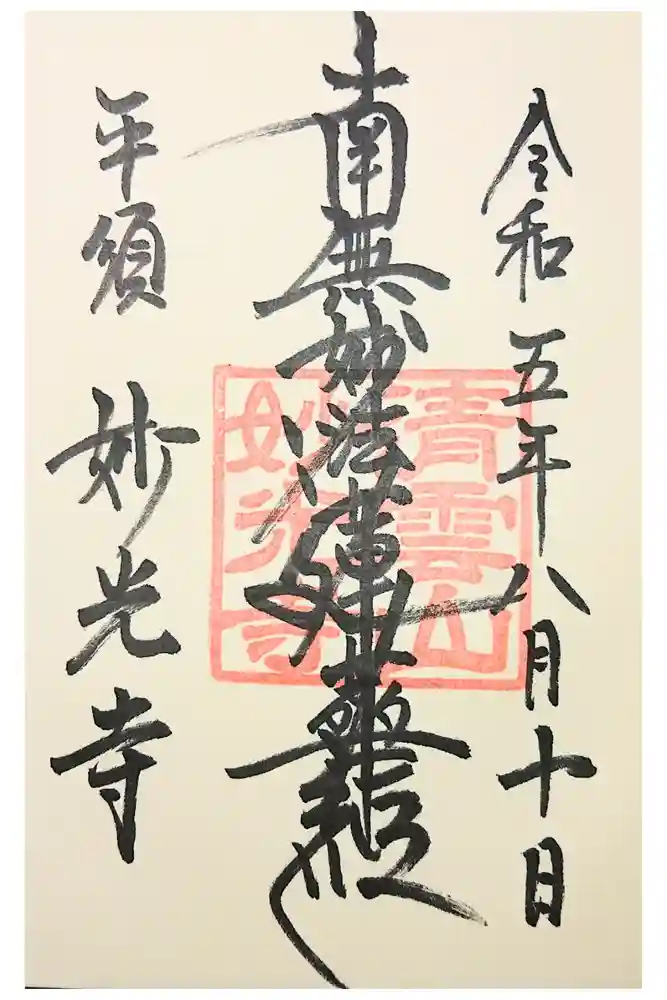 令和五年八月十日
南無妙法蓮華経
青雲山
妙光寺
平須 妙光寺